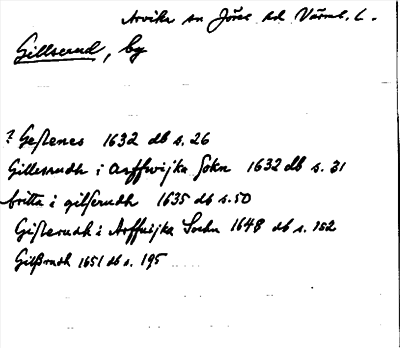 Arvika sn Jösse hd Värml. l.
Gillserud, by
? Geßenes 1632 db s. 26
Gillesrudh i Arffwijka Sokn 1632 db s. 31
britta i gilserudh 1635 db s. 50
Gißerudh i Arffwijka Sochn 1648 db s. 152
Gilßrudh 1651 db s. 195